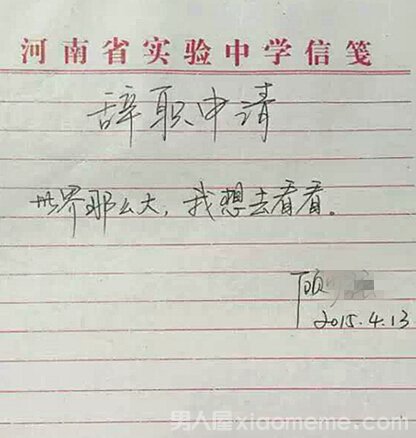 河南省实验中学信笺
辞职申请
世界那么大，我想去看看。
顾
2015.4.13
男人屋xiaomeme.com